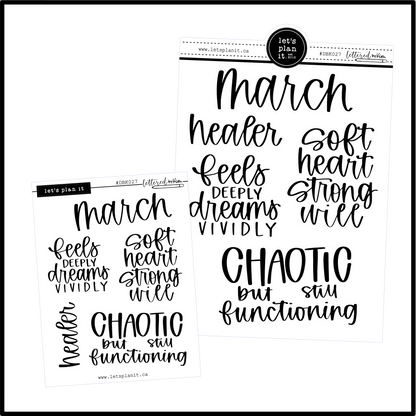 let's
plan
it
www.letsplanit.ca
#DBK027
march
healer
soft
heart
strong
will
feels
DEEPLY
dreams
VIVIDLY
CHAOTIC
but still
functioning
let's plan it
#DBK027
march
feels
DEEPLY
dreams
VIVIDLY
soft
heart
strong
will
healer
CHAOTIC
but still
functioning
www.letsplanit.ca